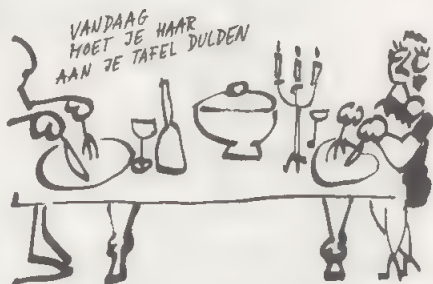 VANDAAG
MOET JE HAAR
AAN JE TAFEL DULDEN